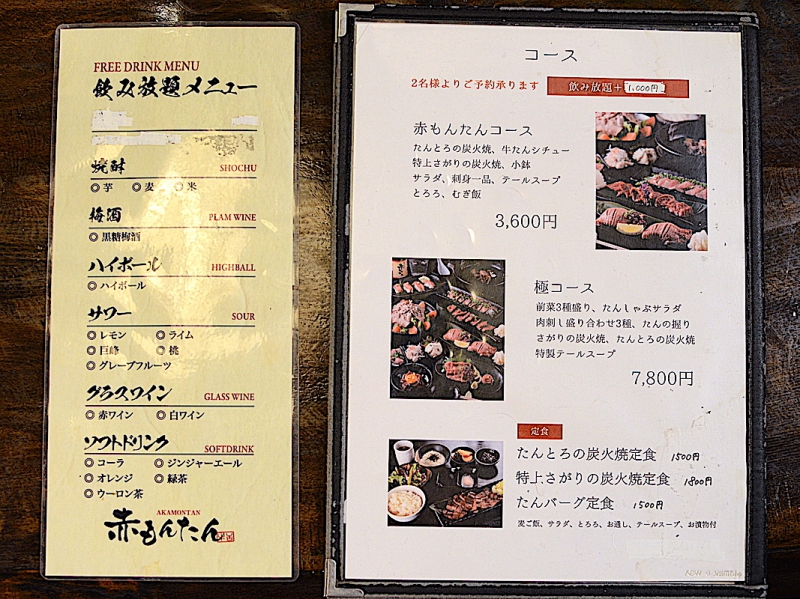 FREE DRINK MENU
飲み放題メニュー
焼酎 SHOCHU
◎芋 ◎麦 ◎米
梅酒 PLAM WINE
◎黒糖梅酒
ハイボール HIGHBALL
◎ハイボール
サワー SOUR
◎レモン ◎ライム
◎巨峰 ◎桃
◎グレープフルーツ
グラスワイン GLASS WINE
◎赤ワイン ◎白ワイン
ソフトドリンク SOFTDRINK
◎コーラ ◎ジンジャーエール
◎オレンジ ◎緑茶
◎ウーロン茶
AKAMONTAN
赤もんたん
コース
2名様よりご予約承ります 飲み放題+1,000円
赤もんたんコース
たんとろの炭火焼、牛たんシチュー
特上さがりの炭火焼、小鉢
サラダ、刺身一品、テールスープ
とろろ、むぎ飯
3,600円
極コース
前菜3種盛り、たんしゃぶサラダ
肉刺し盛り合わせ3種、たんの握り
さがりの炭火焼、たんとろの炭火焼
特製テールスープ
7,800円
定食
たんとろの炭火焼定食 1500円
特上さがりの炭火焼定食 1800円
たんバーグ定食 1500円
麦ご飯、サラダ、とろろ、お通し、テールスープ、お漬物付